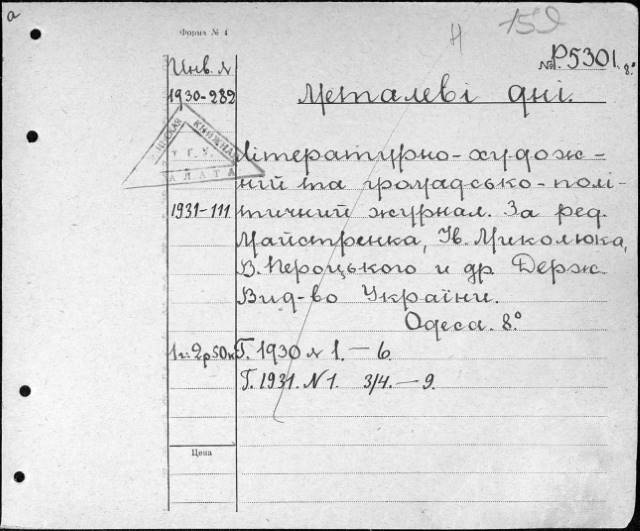 а
Форма № 4
Н
159
Инв. №
№ Р5301. 8.°
1930-282
Металеві дні.
КНИЖНАЯ
ПАЛАТА
Літературно-худож-
ній та громадсько-полі-
1931-111
тичний журнал. За ред.
Майстренка, Ів. Миколюка,
В. Пероцького и др. Держ.
Вид-во України.
Одеса. 8.°
1 н: 2р 50к
Г. 1930 № 1. — 6.
Г. 1931. N 1. 3/4. — 9.
Цена